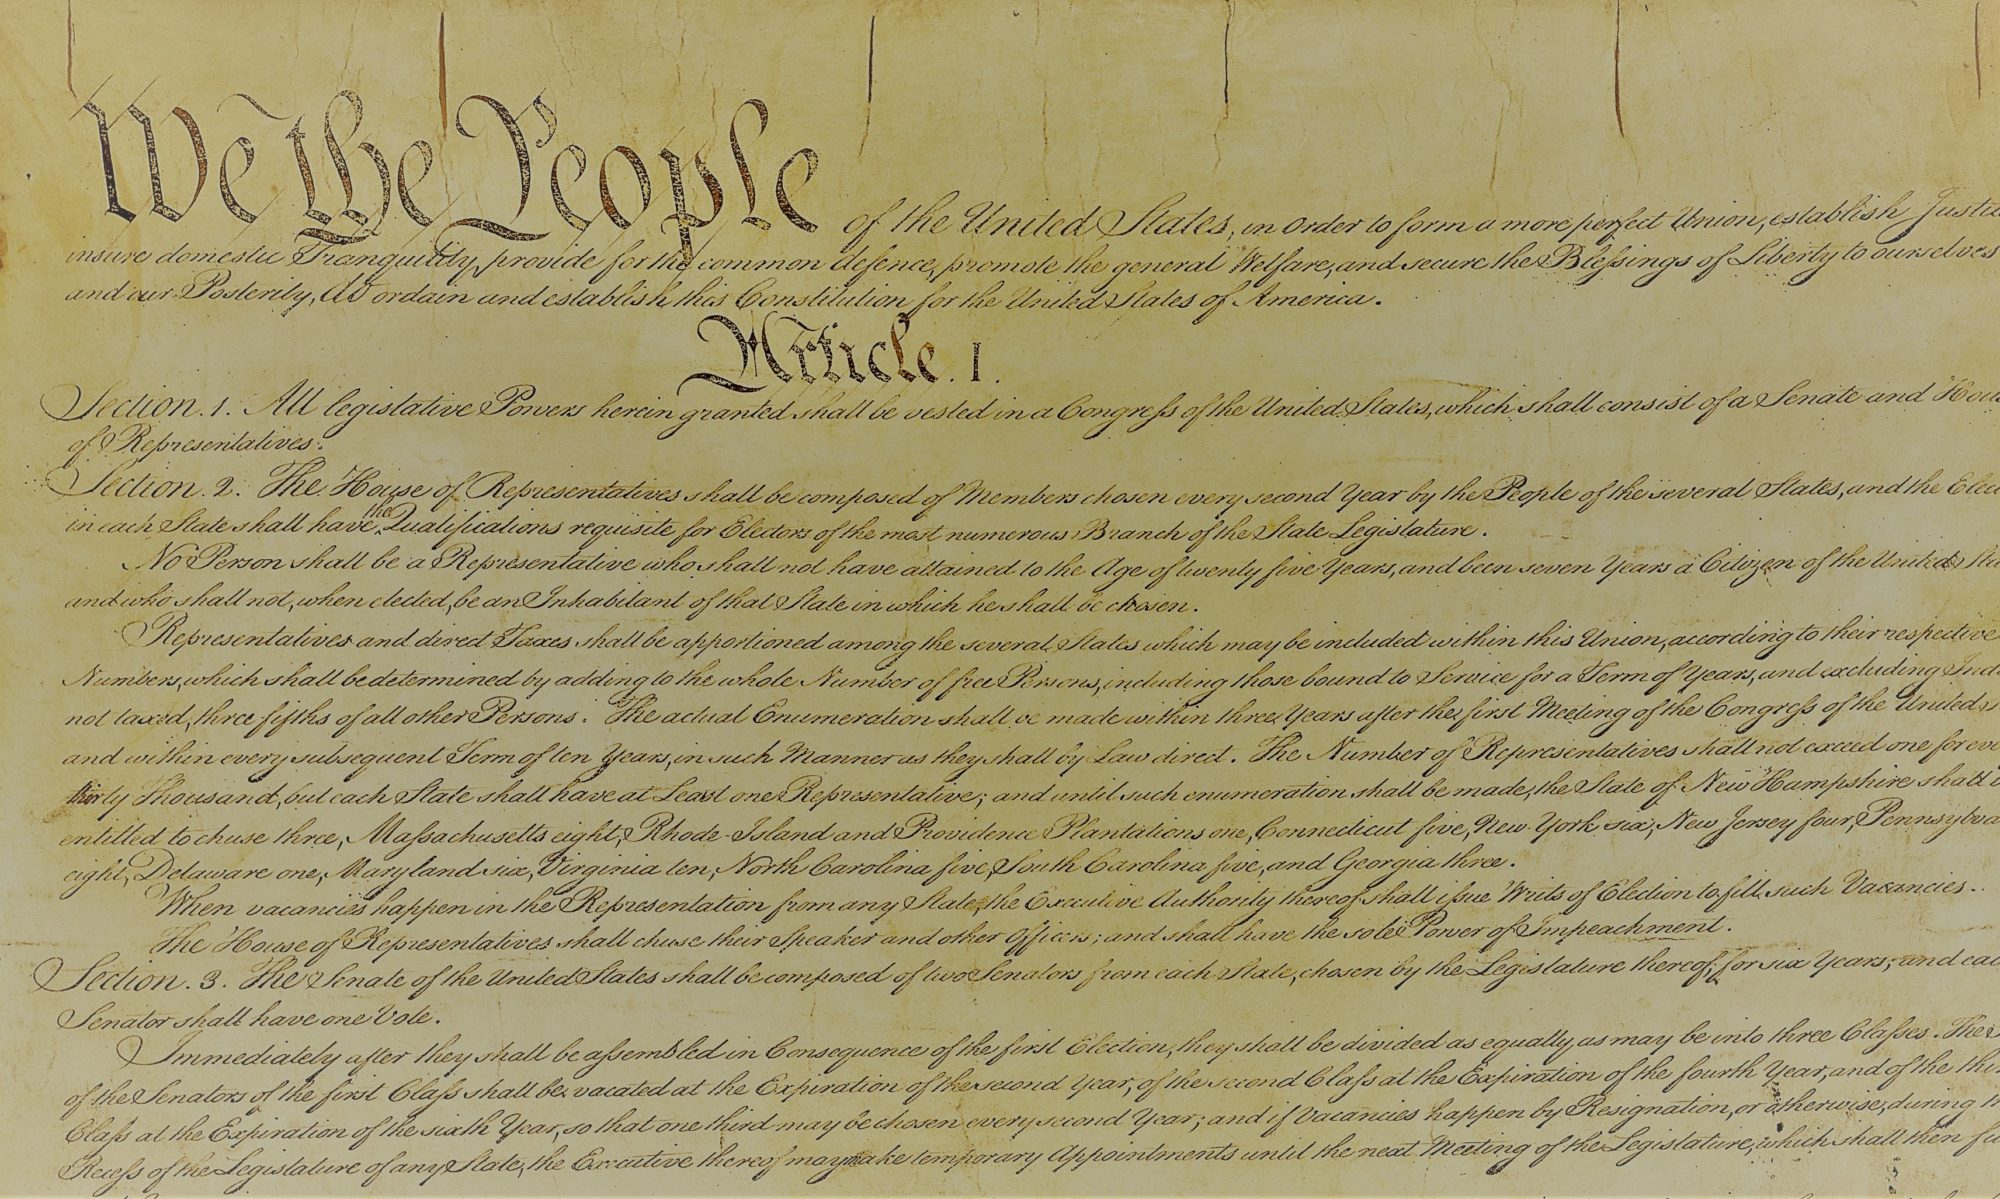 We the People of the United States, in Order to form a more perfect Union, establish Justic
insure domestic Tranquility, provide for the common defence, promote the general Welfare, and secure the Blessings of Liberty to ourselves
and our Posterity, do ordain and establish this Constitution for the United States of America.
Article. I.
Section. 1. All legislative Powers herein granted shall be vested in a Congress of the United States, which shall consist of a Senate and Hous
of Representatives.
Section. 2. The House of Representatives shall be composed of Members chosen every second Year by the People of the several States, and the Elec
in each State shall have the Qualifications requisite for Electors of the most numerous Branch of the State Legislature.
No Person shall be a Representative who shall not have attained to the Age of twenty five Years, and been seven Years a Citizen of the United Sta
and who shall not, when elected, be an Inhabitant of that State in which he shall be chosen.
Representatives and direct Taxes shall be apportioned among the several States which may be included within this Union, according to their respective
Numbers, which shall be determined by adding to the whole Number of free Persons, including those bound to Service for a Term of Years, and excluding Ind
not taxed, three fifths of all other Persons. The actual Enumeration shall be made within three Years after the first Meeting of the Congress of the United S
and within every subsequent Term of ten Years, in such Manner as they shall by Law direct. The Number of Representatives shall not exceed one for eve
thirty Thousand, but each State shall have at Least one Representative; and until such enumeration shall be made, the State of New Hampshire shall
entitled to chuse three, Massachusetts eight, Rhode-Island and Providence Plantations one, Connecticut five, New-York six, New Jersey four, Pennsylva
eight, Delaware one, Maryland six, Virginia ten, North Carolina five, South Carolina five, and Georgia three.
When vacancies happen in the Representation from any State, the Executive Authority thereof shall issue Writs of Election to fill such Vacancies.
The House of Representatives shall chuse their Speaker and other Officers; and shall have the sole Power of Impeachment.
Section. 3. The Senate of the United States shall be composed of two Senators from each State, chosen by the Legislature thereof, for six Years; and eac
Senator shall have one Vote.
Immediately after they shall be assembled in Consequence of the first Election, they shall be divided as equally as may be into three Classes. The
of the Senators of the first Class shall be vacated at the Expiration of the second Year, of the second Class at the Expiration of the fourth Year, and of the thi
Class at the Expiration of the sixth Year, so that one third may be chosen every second Year; and if Vacancies happen by Resignation, or otherwise, during t
Recess of the Legislature of any State, the Executive thereof may make temporary Appointments until the next Meeting of the Legislature, which shall then fi